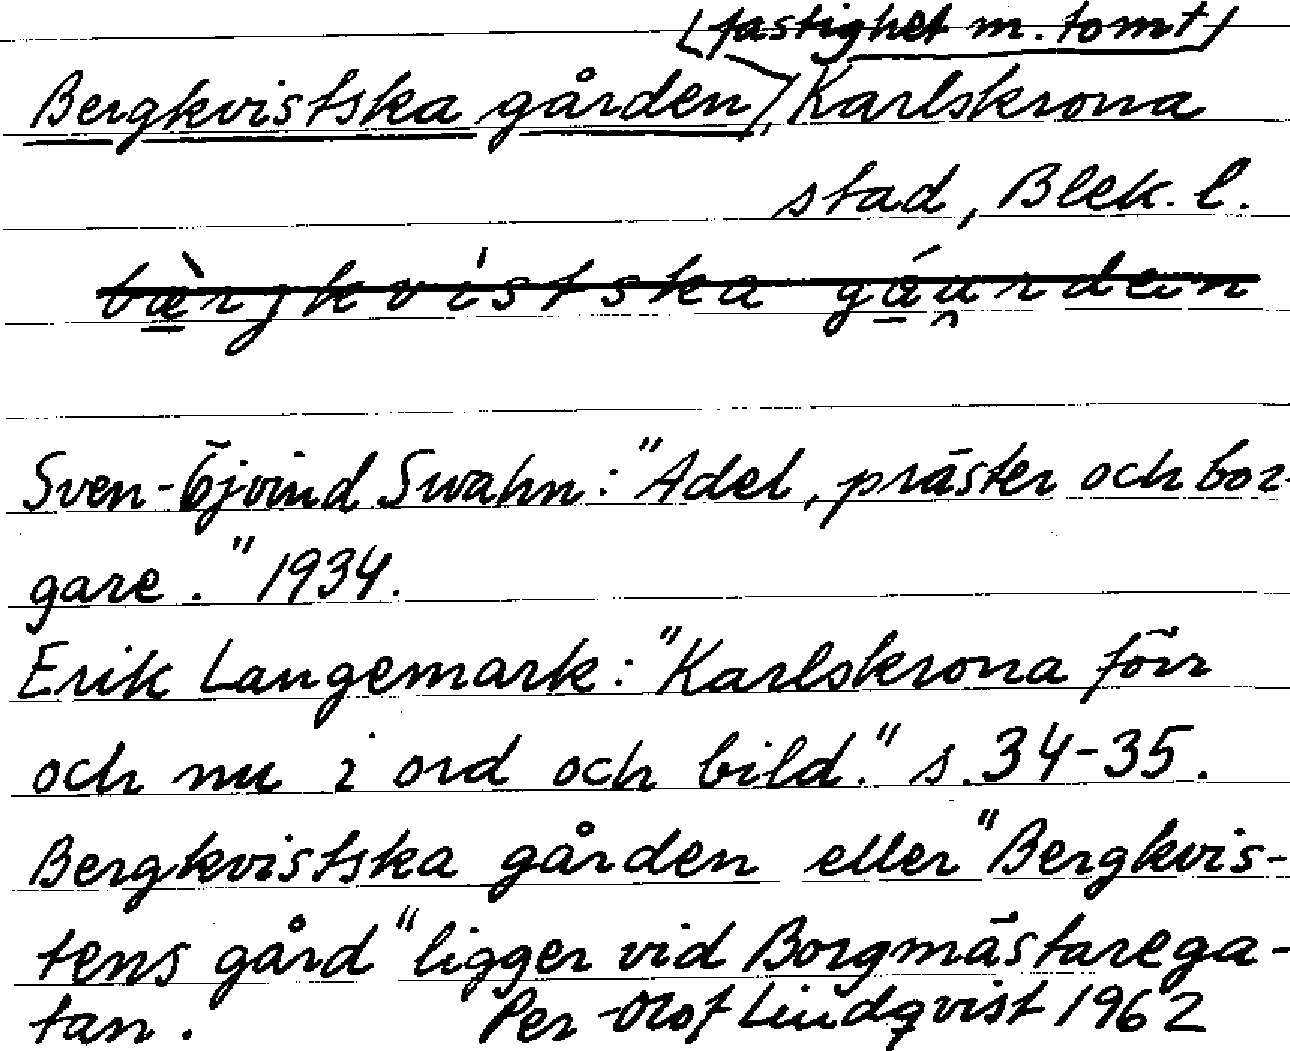 (fastighet m. tomt)
Bergkvistska gården, Karlskrona
stad, Blek. l.
bæ̀rjkvístska gáardän
Sven-Öjvind Swahn: "Adel, präster och bor-
gare." 1934.
Erik Langemark: "Karlskrona förr
och nu i ord och bild." s. 34-35.
Bergkvistska gården eller "Bergkvis-
tens gård" ligger vid Borgmästarega-
tan. Per-Olof Lindqvist 1962